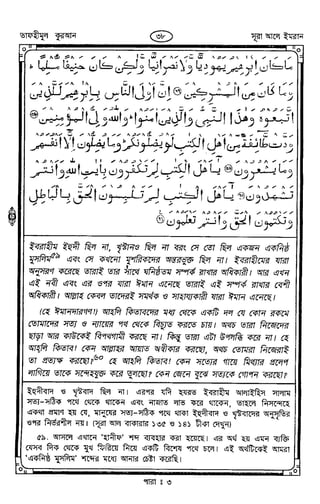 তাফহীমুল কুরআন
৩৮
সূরা আলে ইমরান
مَا كَانَ إِبْرٰهِيْمُ يَهُوْدِيًّا وَّلَا نَصْرَانِيًّا وَّلٰكِنْ كَانَ حَنِيْفًا مُّسْلِمًا ۗ
وَمَا كَانَ مِنَ الْمُشْرِكِيْنَ ۝ إِنَّ أَوْلَى النَّاسِ بِإِبْرٰهِيْمَ لَلَّذِيْنَ
اتَّبَعُوْهُ وَهٰذَا النَّبِيُّ وَالَّذِيْنَ اٰمَنُوْا ۗ وَاللهُ وَلِيُّ الْمُؤْمِنِيْنَ ۝
وَدَّتْ طَّائِفَةٌ مِّنْ أَهْلِ الْكِتٰبِ لَوْ يُضِلُّوْنَكُمْ ۗ وَمَا يُضِلُّوْنَ إِلَّا أَنْفُسَهُمْ
وَمَا يَشْعُرُوْنَ ۝ يٰأَهْلَ الْكِتٰبِ لِمَ تَكْفُرُوْنَ بِاٰيٰتِ اللهِ وَأَنْتُمْ
تَشْهَدُوْنَ ۝ يٰأَهْلَ الْكِتٰبِ لِمَ تَلْبِسُوْنَ الْحَقَّ بِالْبَاطِلِ
وَتَكْتُمُوْنَ الْحَقَّ وَأَنْتُمْ تَعْلَمُوْنَ ۝
ইবরাহীম ইহুদী ছিল না, খৃষ্টানও ছিল না বরং সে তো ছিল একজন একনিষ্ঠ
মুসলিম৫৯ এবং সে কখনো মুশরিকদের অন্তরভুক্ত ছিল না। ইবরাহীমের যারা
অনুসরণ করেছে তারাই তার সাথে ঘনিষ্ঠতম সম্পর্ক রাখার অধিকারী। আর এখন
এই নবী এবং এর ওপর যারা ঈমান এনেছে তারাই এই সম্পর্ক রাখার বেশী
অধিকারী। আল্লাহ কেবল তাদেরই সমর্থক ও সাহায্যকারী যারা ঈমান এনেছে।
(হে ঈমানদারগণ!) আহলি কিতাবদের মধ্য থেকে একটি দল যে কোন রকমে
তোমাদের সত্য ও ন্যায়ের পথ থেকে বিচ্যুত করতে চায়। অথচ তারা নিজেদের
ছাড়া আর কাউকেই বিপথগামী করছে না। কিন্তু তারা এটা উপলব্ধি করে না। হে
আহলি কিতাব! কেন আল্লাহর আয়াত অস্বীকার করছো, অথচ তোমরা নিজেরাই
তা প্রত্যক্ষ করছো?৬০ হে আহলি কিতাব! কেন সত্যের গায়ে মিথ্যার প্রলেপ
লাগিয়ে তাকে সন্দেহযুক্ত করে তুলছো? কেন জেনে বুঝে সত্যকে গোপন করছো?
ইহুদীবাদ ও খৃষ্টবাদ ছিল না। এরপর যদি হযরত ইবরাহীম আলাইহিস সালাম
সত্য-সঠিক পথে থেকে থাকেন এবং নাজাত লাভ করে থাকেন, তাহলে নিসন্দেহে
একথা প্রমাণ হয় যে, মানুষের সত্য-সঠিক পথে থাকা ইহুদীবাদ ও খৃষ্টবাদের অনুসৃতির
ওপর নির্ভরশীল নয়। (সূরা আল বাকারার ১৩৫ ও ১৪১ টীকা দেখুন)
৫৯. আসলে এখানে 'হানীফ' শব্দ ব্যবহার করা হয়েছে। এর অর্থ হয় এমন ব্যক্তি
যেসব দিক থেকে মুখ ফিরিয়ে নিয়ে একটি বিশেষ পথে চলে। এই অর্থটিকেই আমরা
'একনিষ্ঠ মুসলিম' শব্দের মধ্যে আনার চেষ্টা করেছি।
পারা ঃ ৩